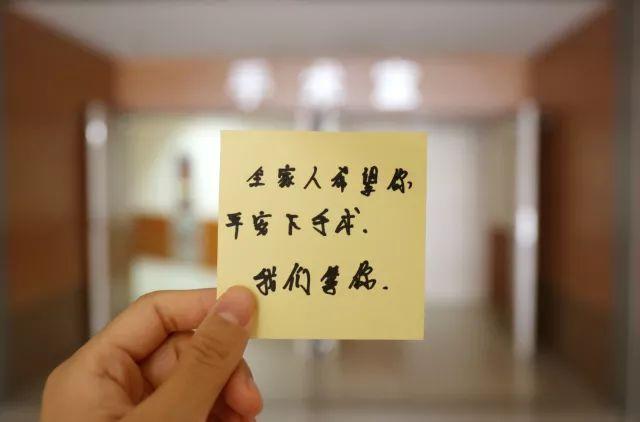 全家人希望你
平安下手术.
我们等你.